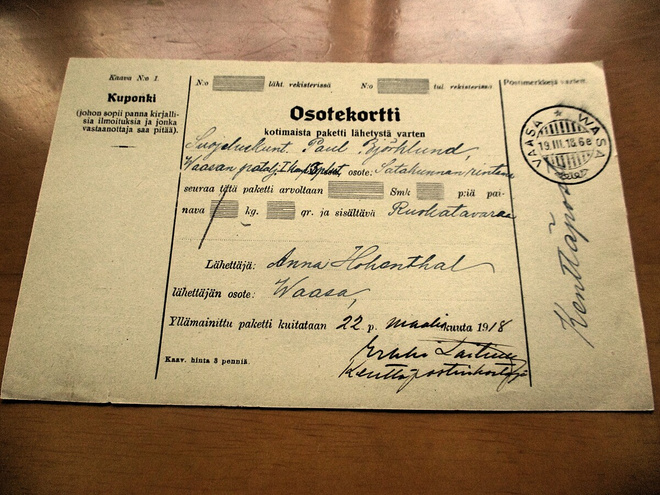 Kaava N:o 1.
Kuponki
(johon sopii panna kirjalli-
sia ilmoituksia ja jonka
vastaanottaja saa pitää).
N:o läht. rekisterissä N:o tul. rekisterissä
Osotekortti
kotimaista paketti lähetystä varten
Suojeluskunt. Paul Björklund,
Waasan patalj. I komp. osote: Satakunnan rintama
seuraa tätä paketti arvoltaan Smk p:iä pai-
nava 1 kg. gr. ja sisältävä Ruokatavaraa
Lähettäjä: Anna Hohenthal
lähettäjän osote: Waasa,
Yllämainittu paketti kuitataan 22 p. maaliskuuta 1918
Kaav. hinta 3 penniä.
Postimerkkejä varten.
VAASA WASA
19.III.18
Kenttäpos